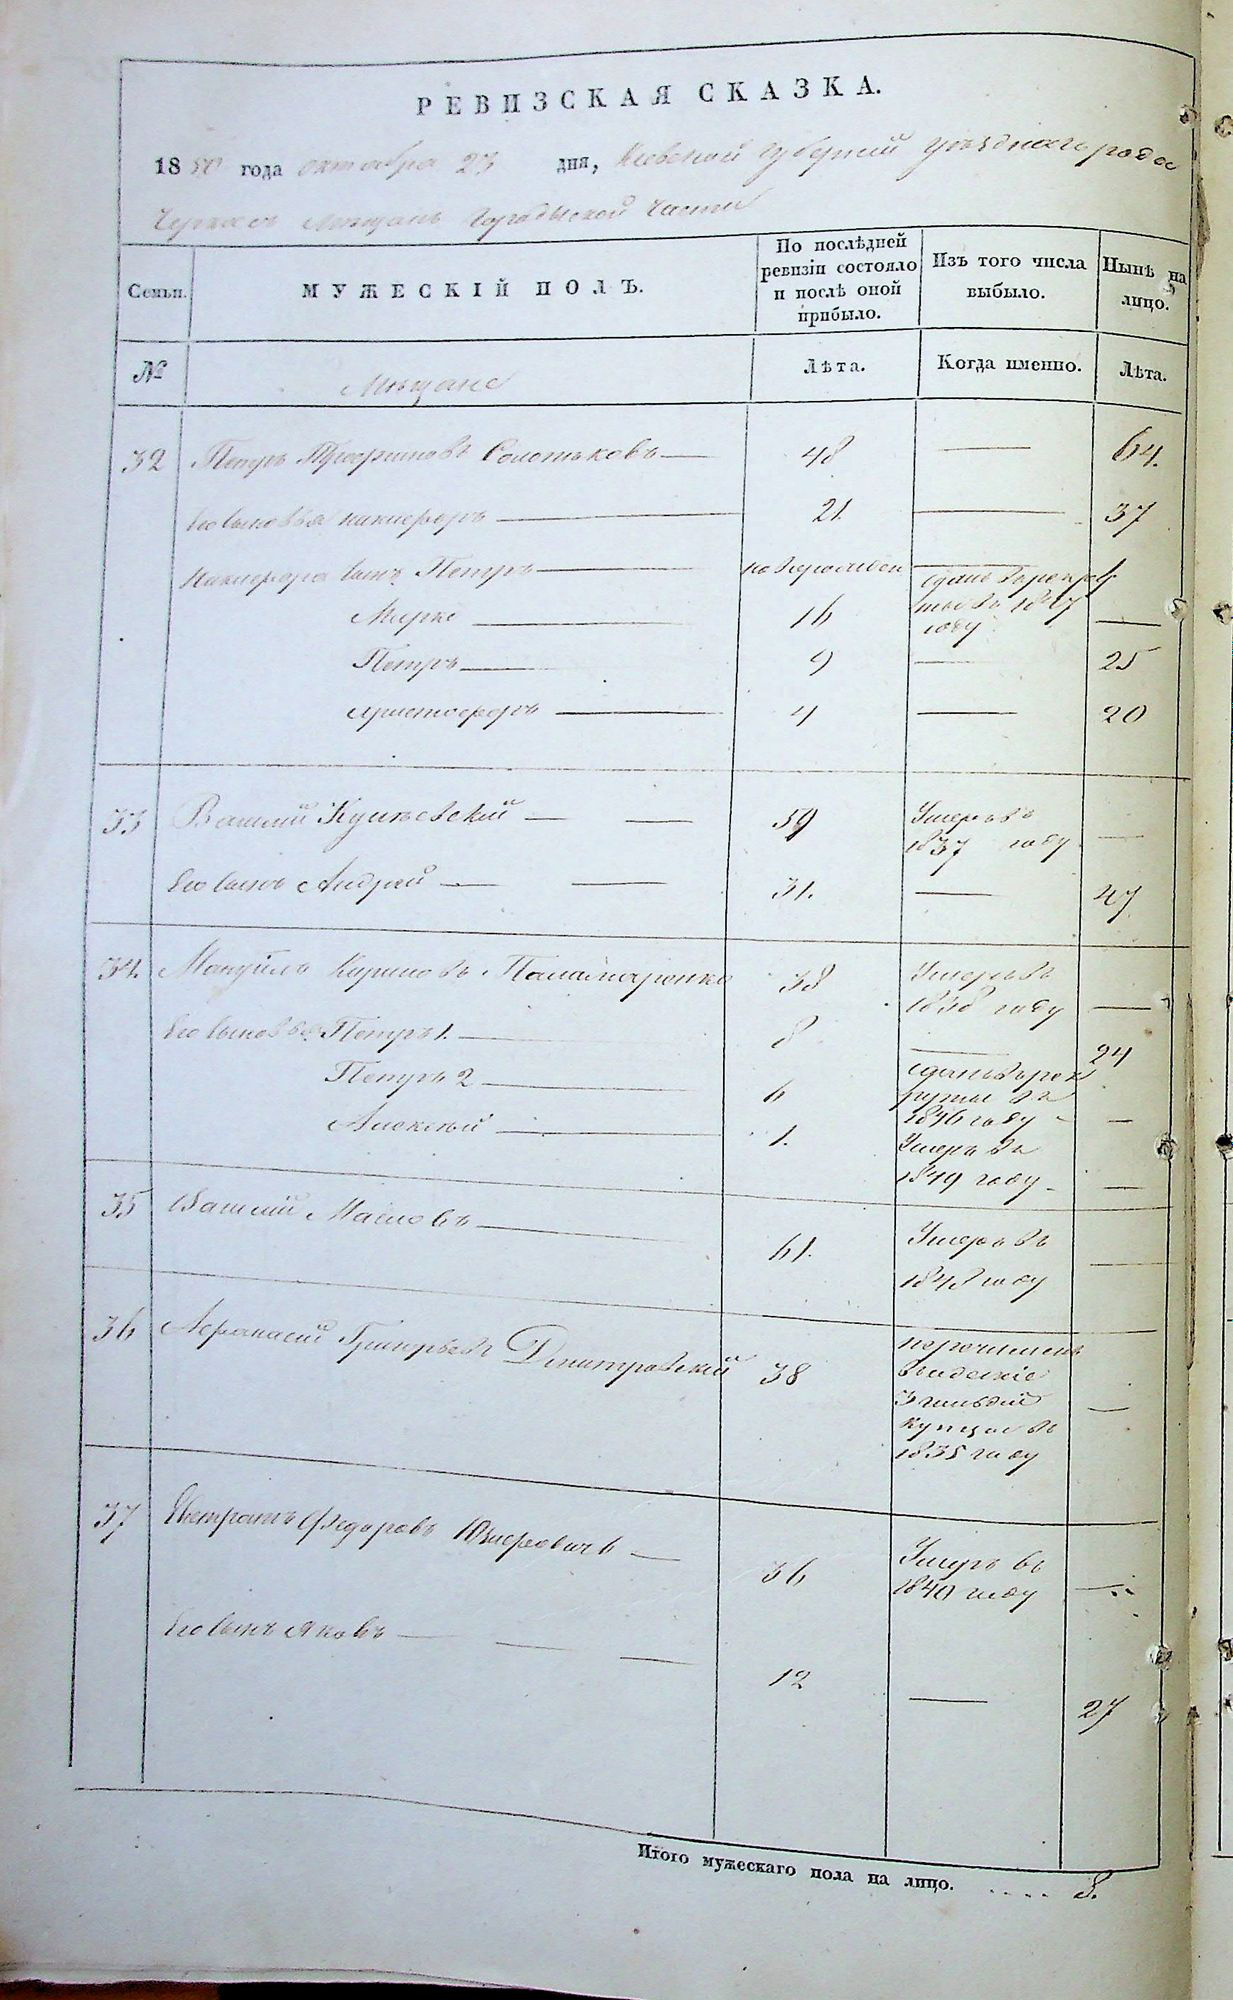 РЕВИЗСКАЯ СКАЗКА.
1850 года октября 23 дня, Киевской Губернии уезднаго города
Черкас Мещан Городской Части
Семьи. МУЖЕСКІЙ ПОЛЪ. По послѣдней ревизіи состояло и послѣ оной прибыло. Изъ того числа выбыло. Нынѣ на лицо.
№ Мещане Лѣта. Когда именно. Лѣта.
32 Петръ Солотьковъ 48 — 64.
Его сыновья Никифоръ 21 — 37
Никифора сынъ Петръ новорожден — 1
Марко 16 сданъ в рекруты в 1847 году —
Петръ 9 — 25
Христофоръ 4 — 20
33 Василий 59 Умеръ въ 1837 году —
Его сынъ Андрей 31. — 47
34. Мануйлъ Кириловъ Паламаренко 38 Умеръ въ 1848 году —
Его сыновья Петръ 1. 8 — 24
Петръ 2 6 сданъ въ рекруты въ 1846 году —
Алексѣй 1. Умеръ въ 1849 году —
35 Василий Масловъ 61. Умеръ въ 1848 году —
36 Афанасий Григорьевъ Дмитровский 38 перечисленъ 3 гильдии купцов въ 1835 году —
37 Евстратъ Федоровъ 36 Умеръ въ 1840 году —
Его сынъ Яковъ — 12 — 27
Итого мужескаго пола на лицо. .... 8.